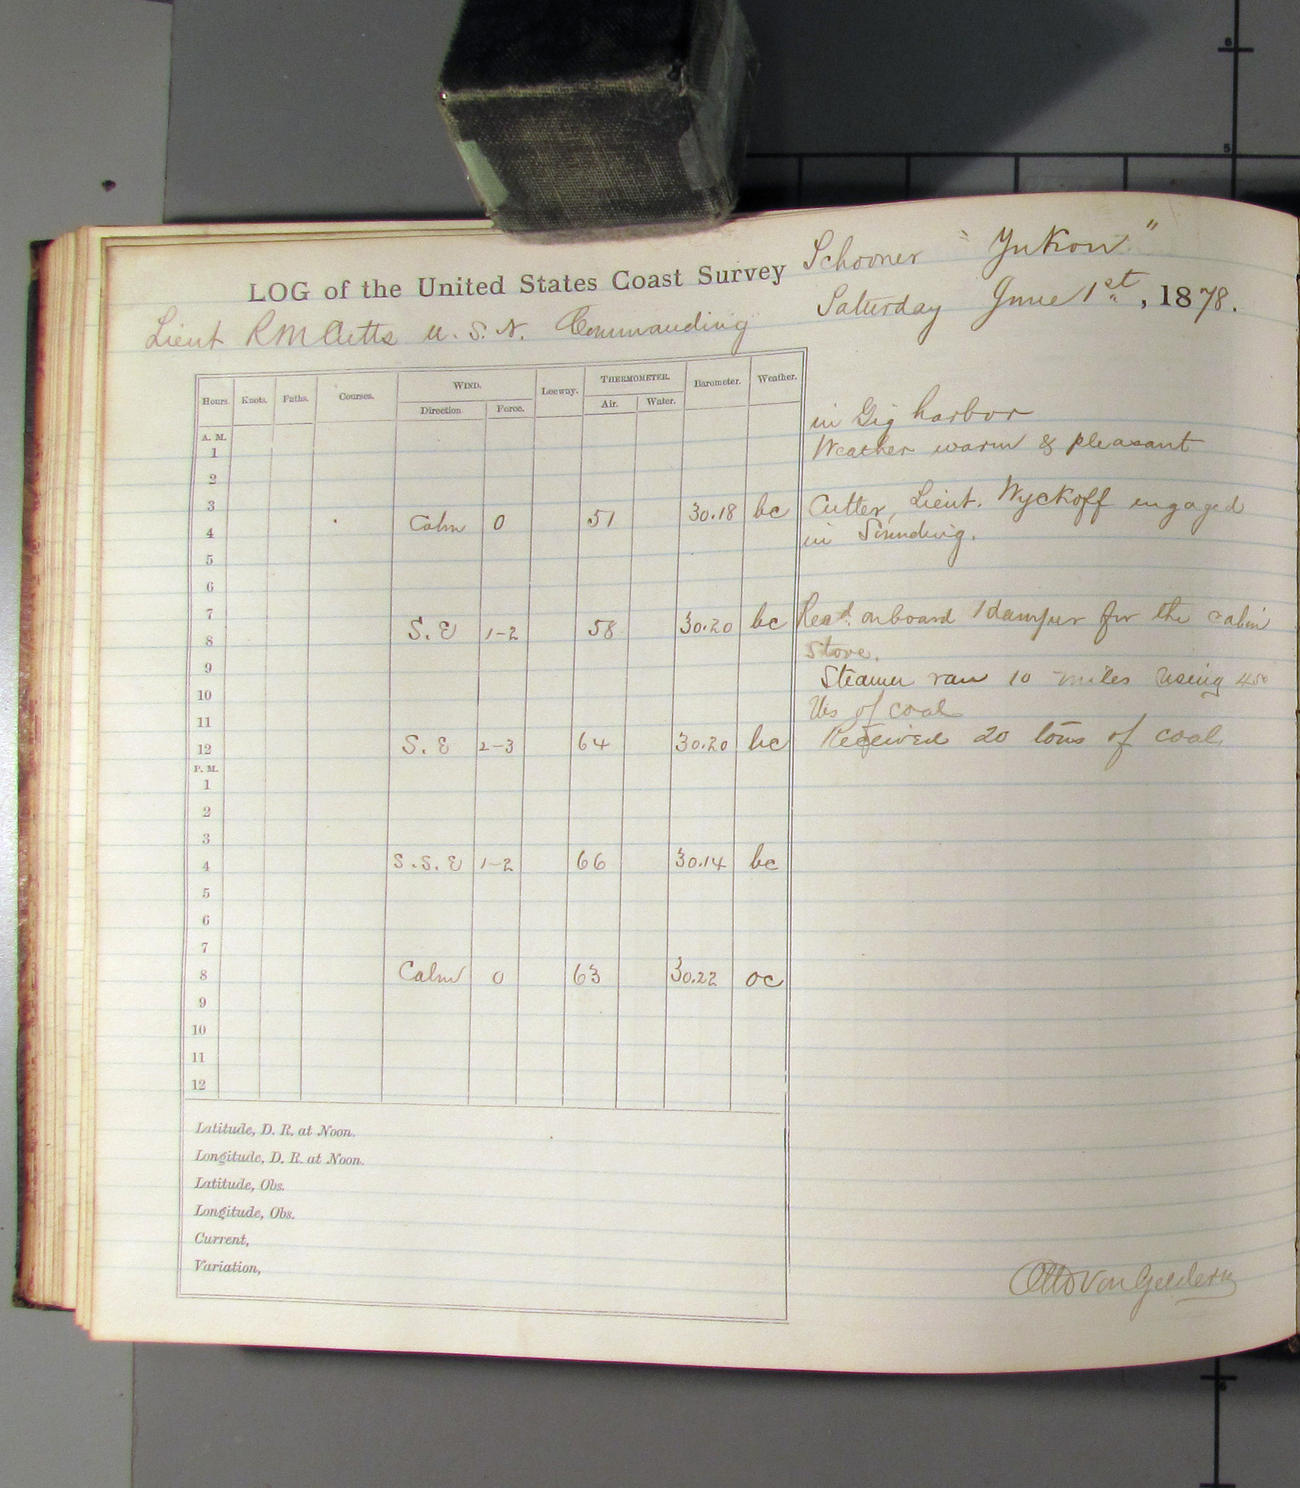 LOG of the United States Coast Survey Schooner "Yukon"
Lieut R M Cutts U. S. N. Commanding Saturday June 1st, 1878.
Hours. Knots. Faths. Courses. WIND. Leeway. THERMOMETER. Barometer. Weather.
Direction Force. Air. Water.
in Gig harbor
A. M.
1 Weather warm & pleasant
2
3 Cutter, Lieut. Wyckoff engaged
4 Calm 0 51 30.18 bc in Sounding.
5
6
7 Recd. onboard 1 damper for the cabin
8 S.E 1-2 58 30.20 bc stove.
9 Steamer ran 10 miles using 450
10 lbs of coal
11 Received 20 tons of coal
12 S.E 2-3 64 30.20 bc
P. M.
1
2
3
4 S.S.E 1-2 66 30.14 bc
5
6
7
8 Calm 0 63 30.22 oc
9
10
11
12
Latitude, D. R. at Noon.
Longitude, D. R. at Noon.
Latitude, Obs.
Longitude, Obs.
Current,
Variation,
Otto von Geldern